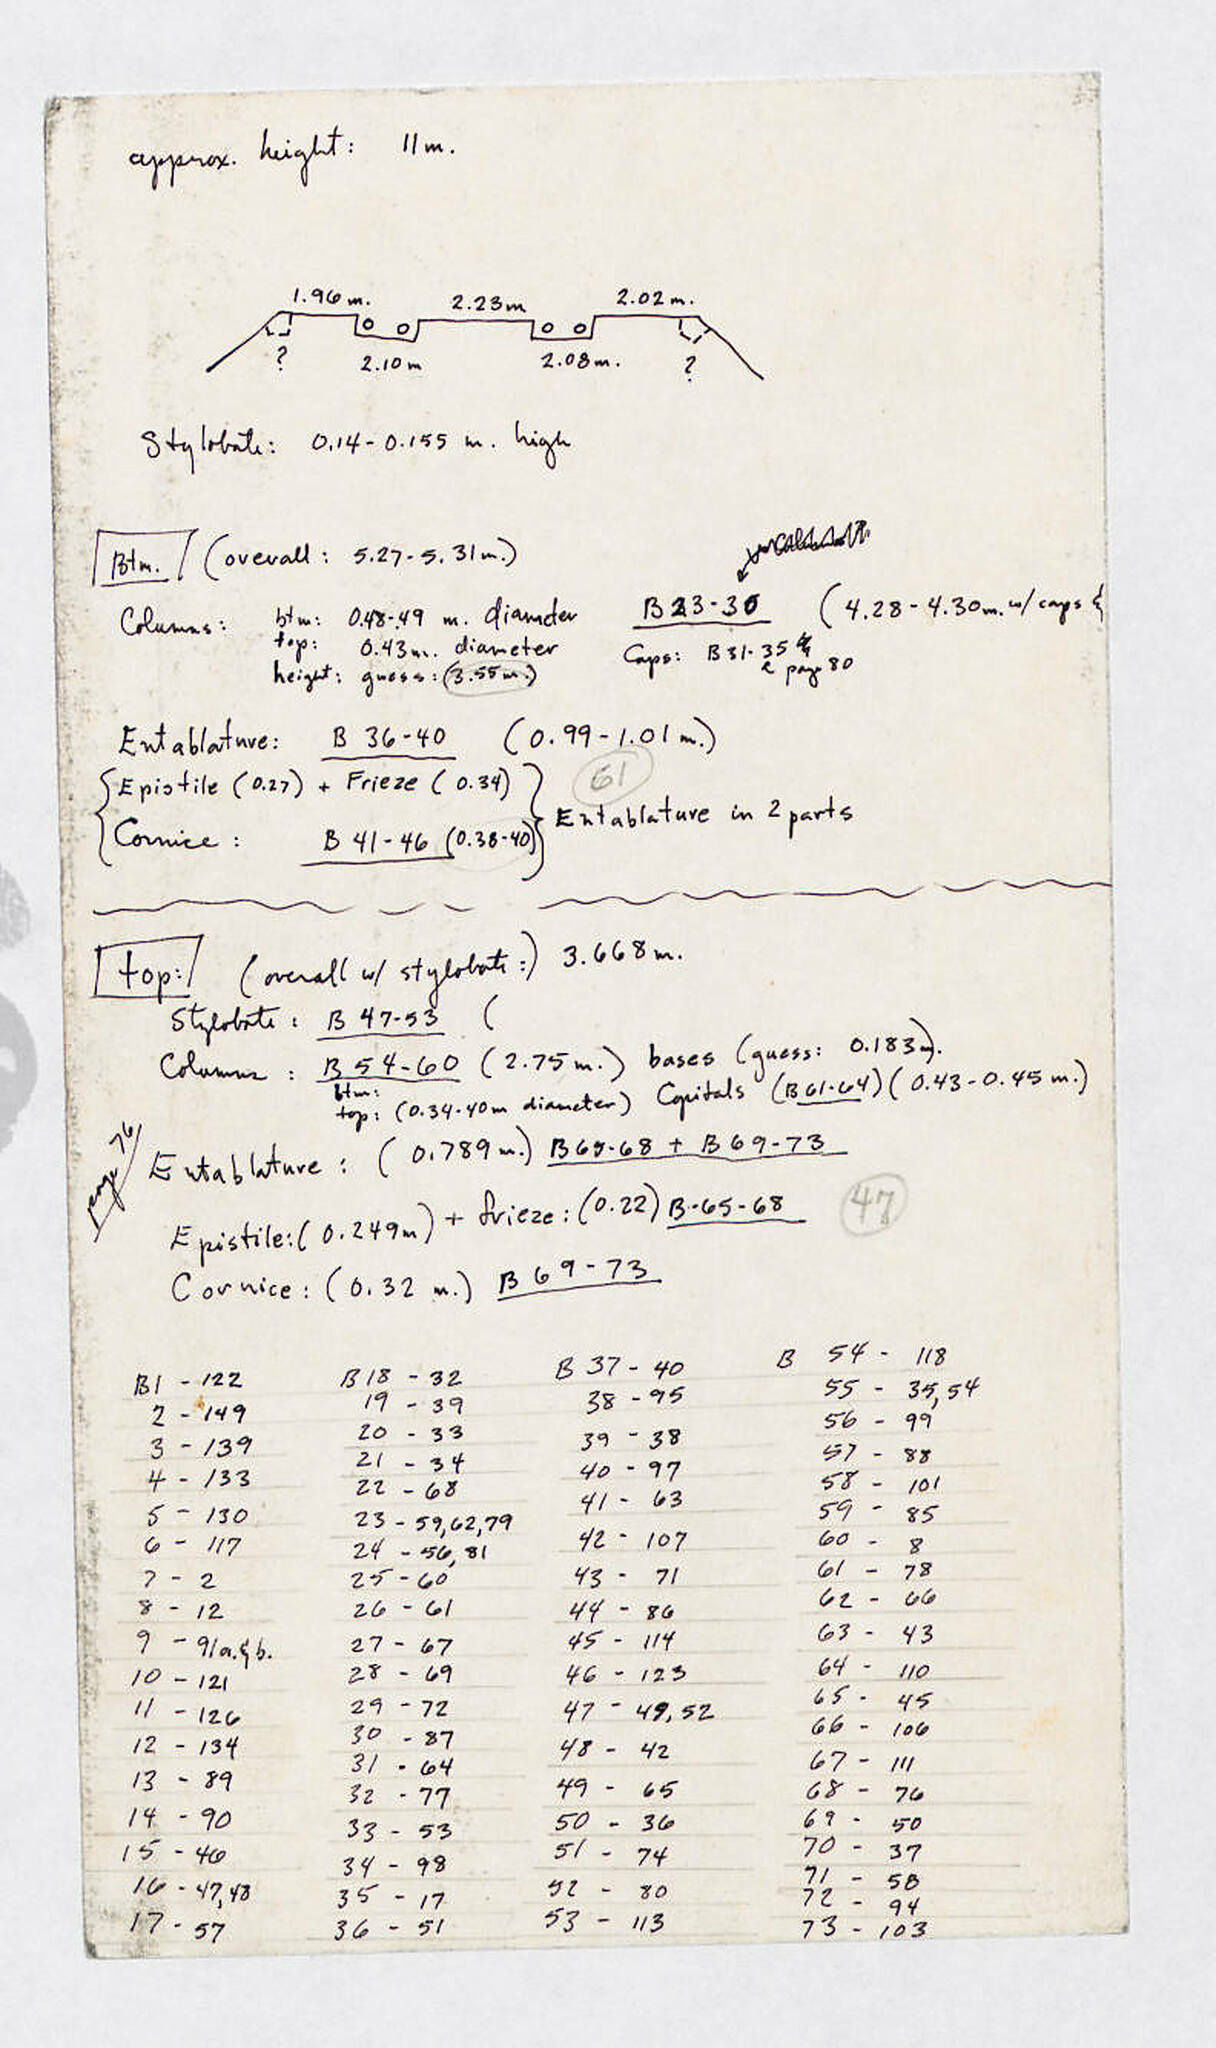 approx. height: 11m.
1.96m. 2.23m 2.02m.
? 2.10m 2.08m. ?
Stylobate: 0.14-0.155 m. high
Btm. (overall: 5.27-5.31m.)
Columns: btm: 0.48-.49 m. diameter B23-30 (4.28-4.30m. w/ caps &
top: 0.43m. diameter Caps: B31-35 &
height: guess: (3.55m.) page 80
Entablature: B 36-40 (0.99-1.01m.)
61
{Epistile (0.27) + Frieze (0.34)}
{Cornice: B 41-46 (0.38-40)} Entablature in 2 parts
top: (overall w/ stylobate:) 3.668m.
Stylobate: B 47-53 (
Columns: B 54-60 (2.75m.) bases (guess: 0.183m).
btm:
top: (0.34-40m diameter) Capitals (B61-64) (0.43-0.45m.)
page 76
Entablature: (0.789m.) B65-68 + B69-73
Epistile: (0.249m) + frieze: (0.22) B-65-68 47
Cornice: (0.32 m.) B 69-73
B1 - 122 B18 - 32 B 37 - 40 B 54 - 118
2 - 149 19 - 39 38 - 95 55 - 35,54
3 - 139 20 - 33 39 - 38 56 - 99
4 - 133 21 - 34 40 - 97 57 - 88
5 - 130 22 - 68 41 - 63 58 - 101
6 - 117 23 - 59,62,79 42 - 107 59 - 85
7 - 2 24 - 56,81 43 - 71 60 - 8
8 - 12 25 - 60 44 - 86 61 - 78
9 - 91a.&b. 26 - 61 45 - 114 62 - 66
10 - 121 27 - 67 46 - 123 63 - 43
11 - 126 28 - 69 47 - 49,52 64 - 110
12 - 134 29 - 72 48 - 42 65 - 45
13 - 89 30 - 87 49 - 65 66 - 106
14 - 90 31 - 64 50 - 36 67 - 111
15 - 46 32 - 77 51 - 74 68 - 76
16 - 47,48 33 - 53 52 - 80 69 - 50
17 - 57 34 - 98 53 - 113 70 - 37
35 - 17 71 - 58
36 - 51 72 - 94
73 - 103